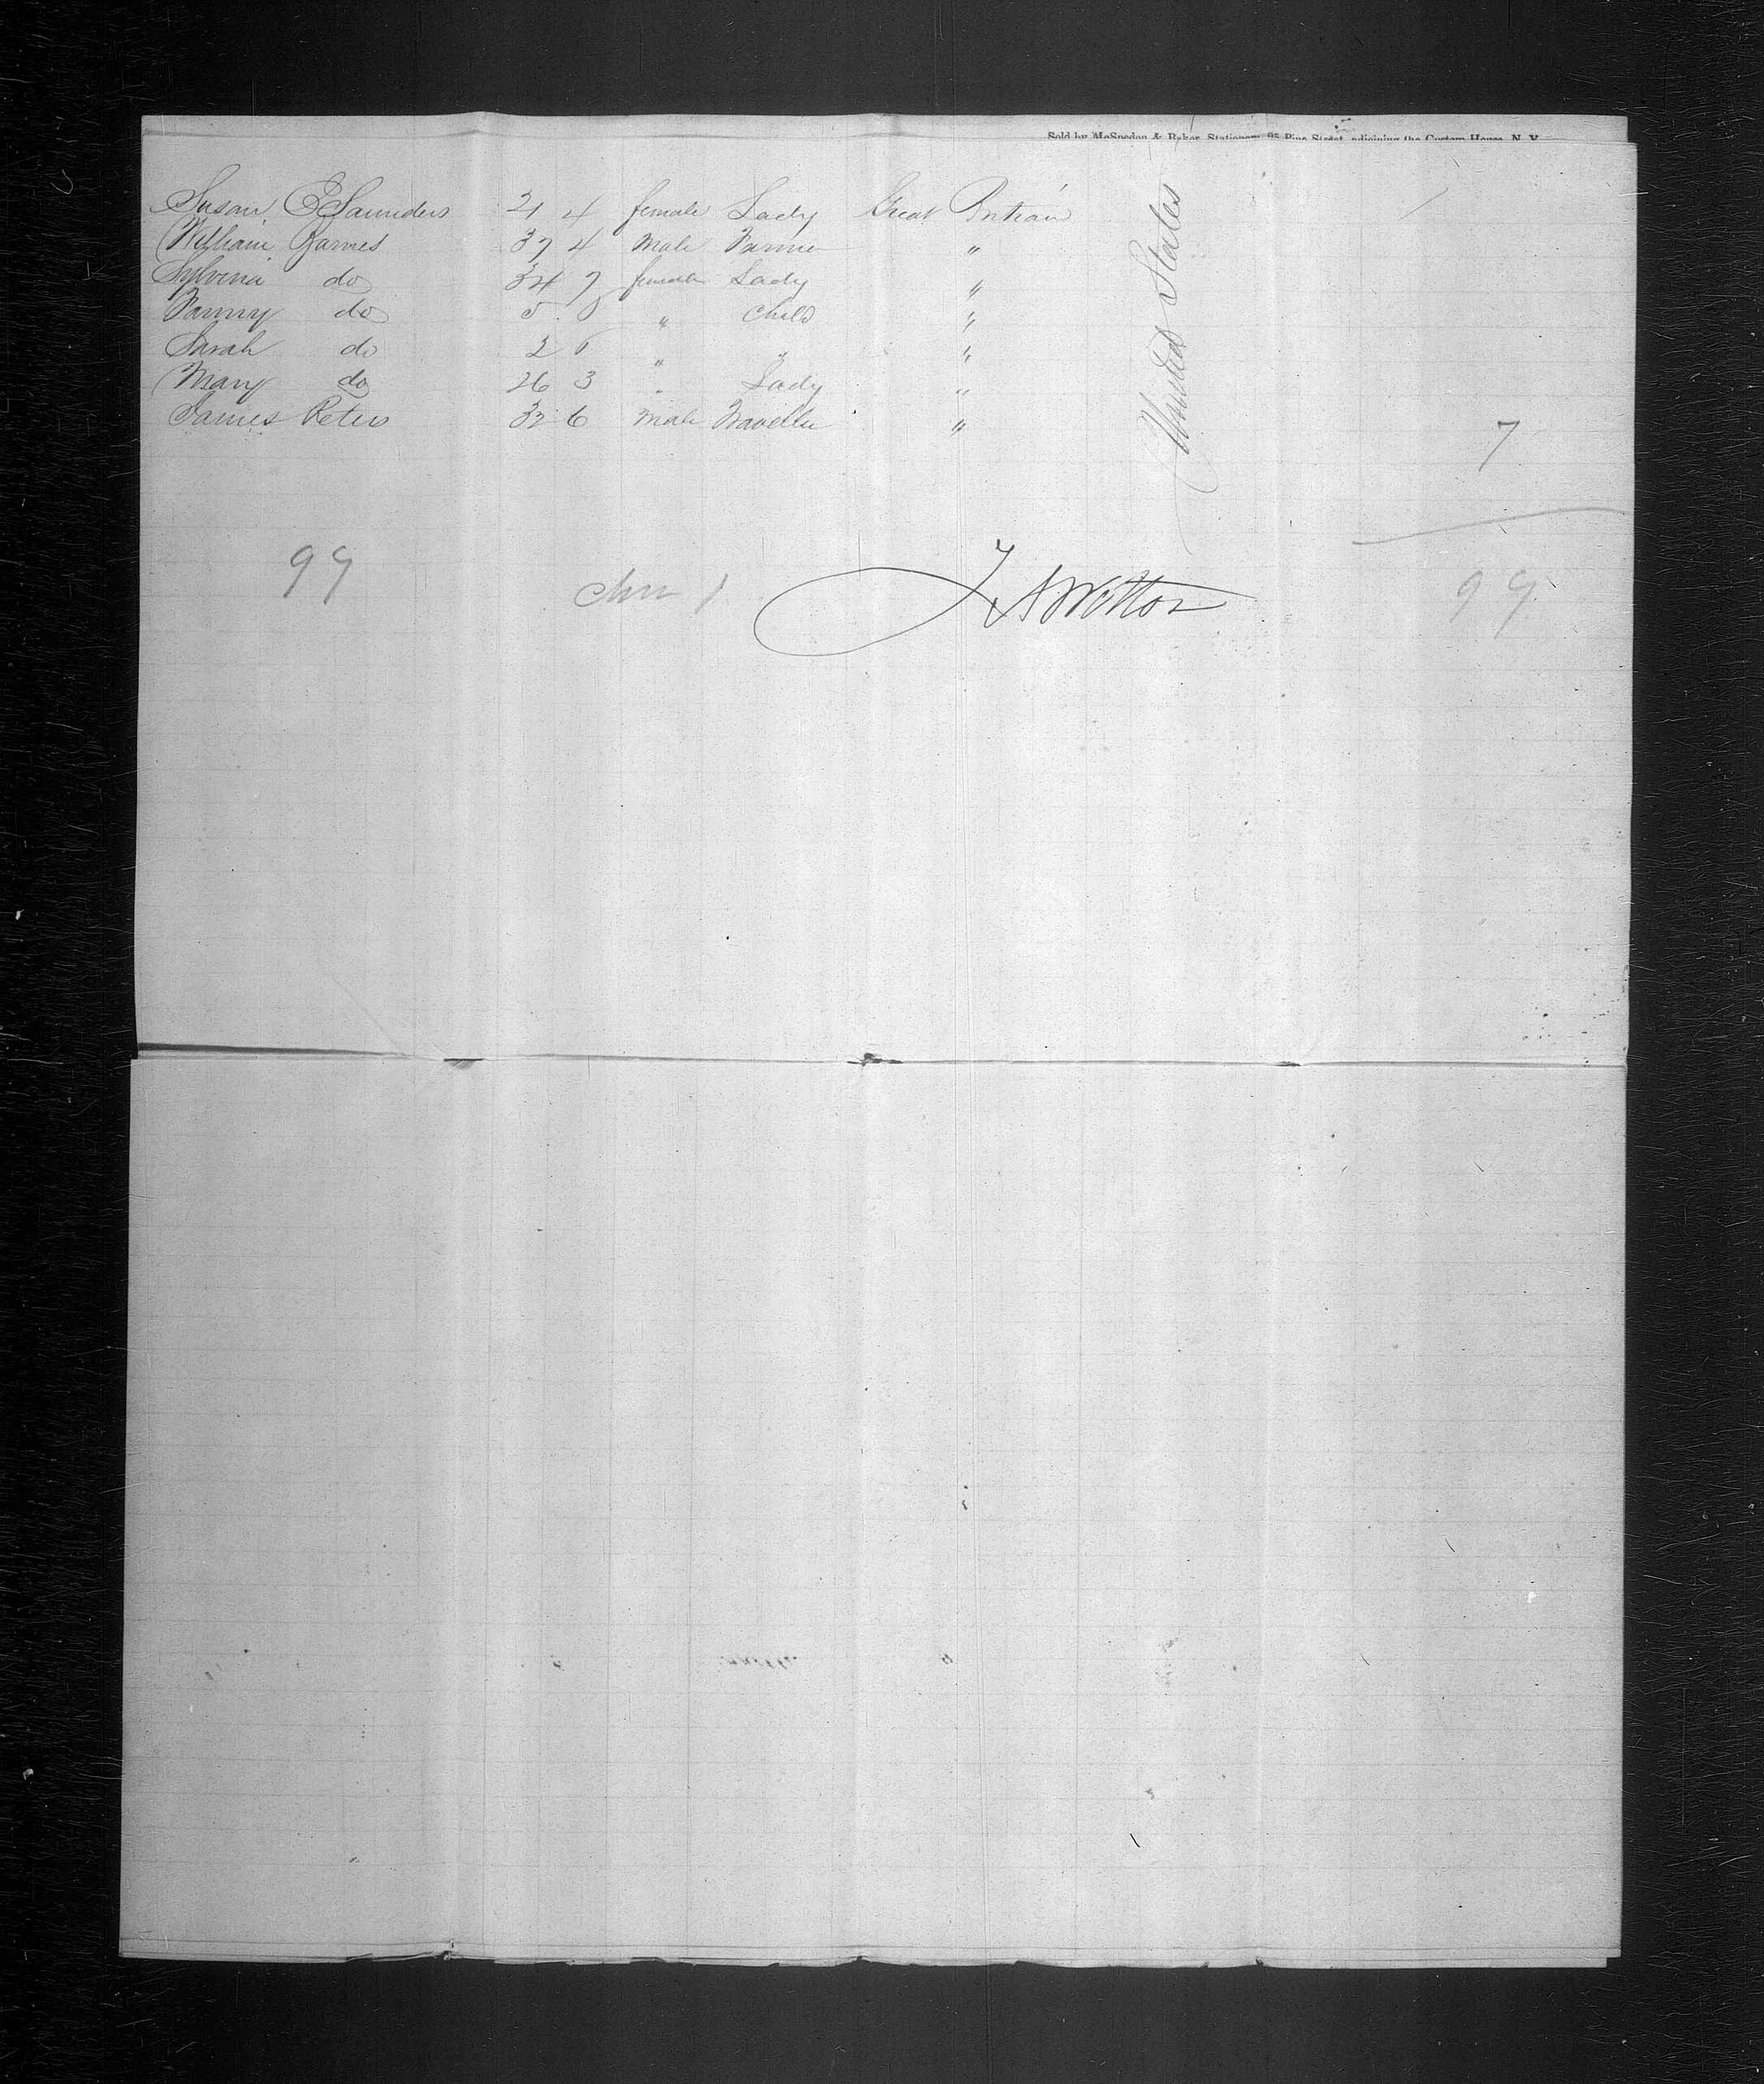 Sold by McSpedon & Baker, Stationers, 25 Pine Street, adjoining the Custom House, N. Y.
Susan E Saunders 21 4 female Lady Great Britain
William Barnes 37 4 Male Farmer "
Sylvina do 34 7 female Lady "
Fanny do 5 . " Child "
Sarah do 2 6 " " "
Mary do 26 3 " Lady "
James Peters 32 6 Male Traveller "
United States
7
99
99